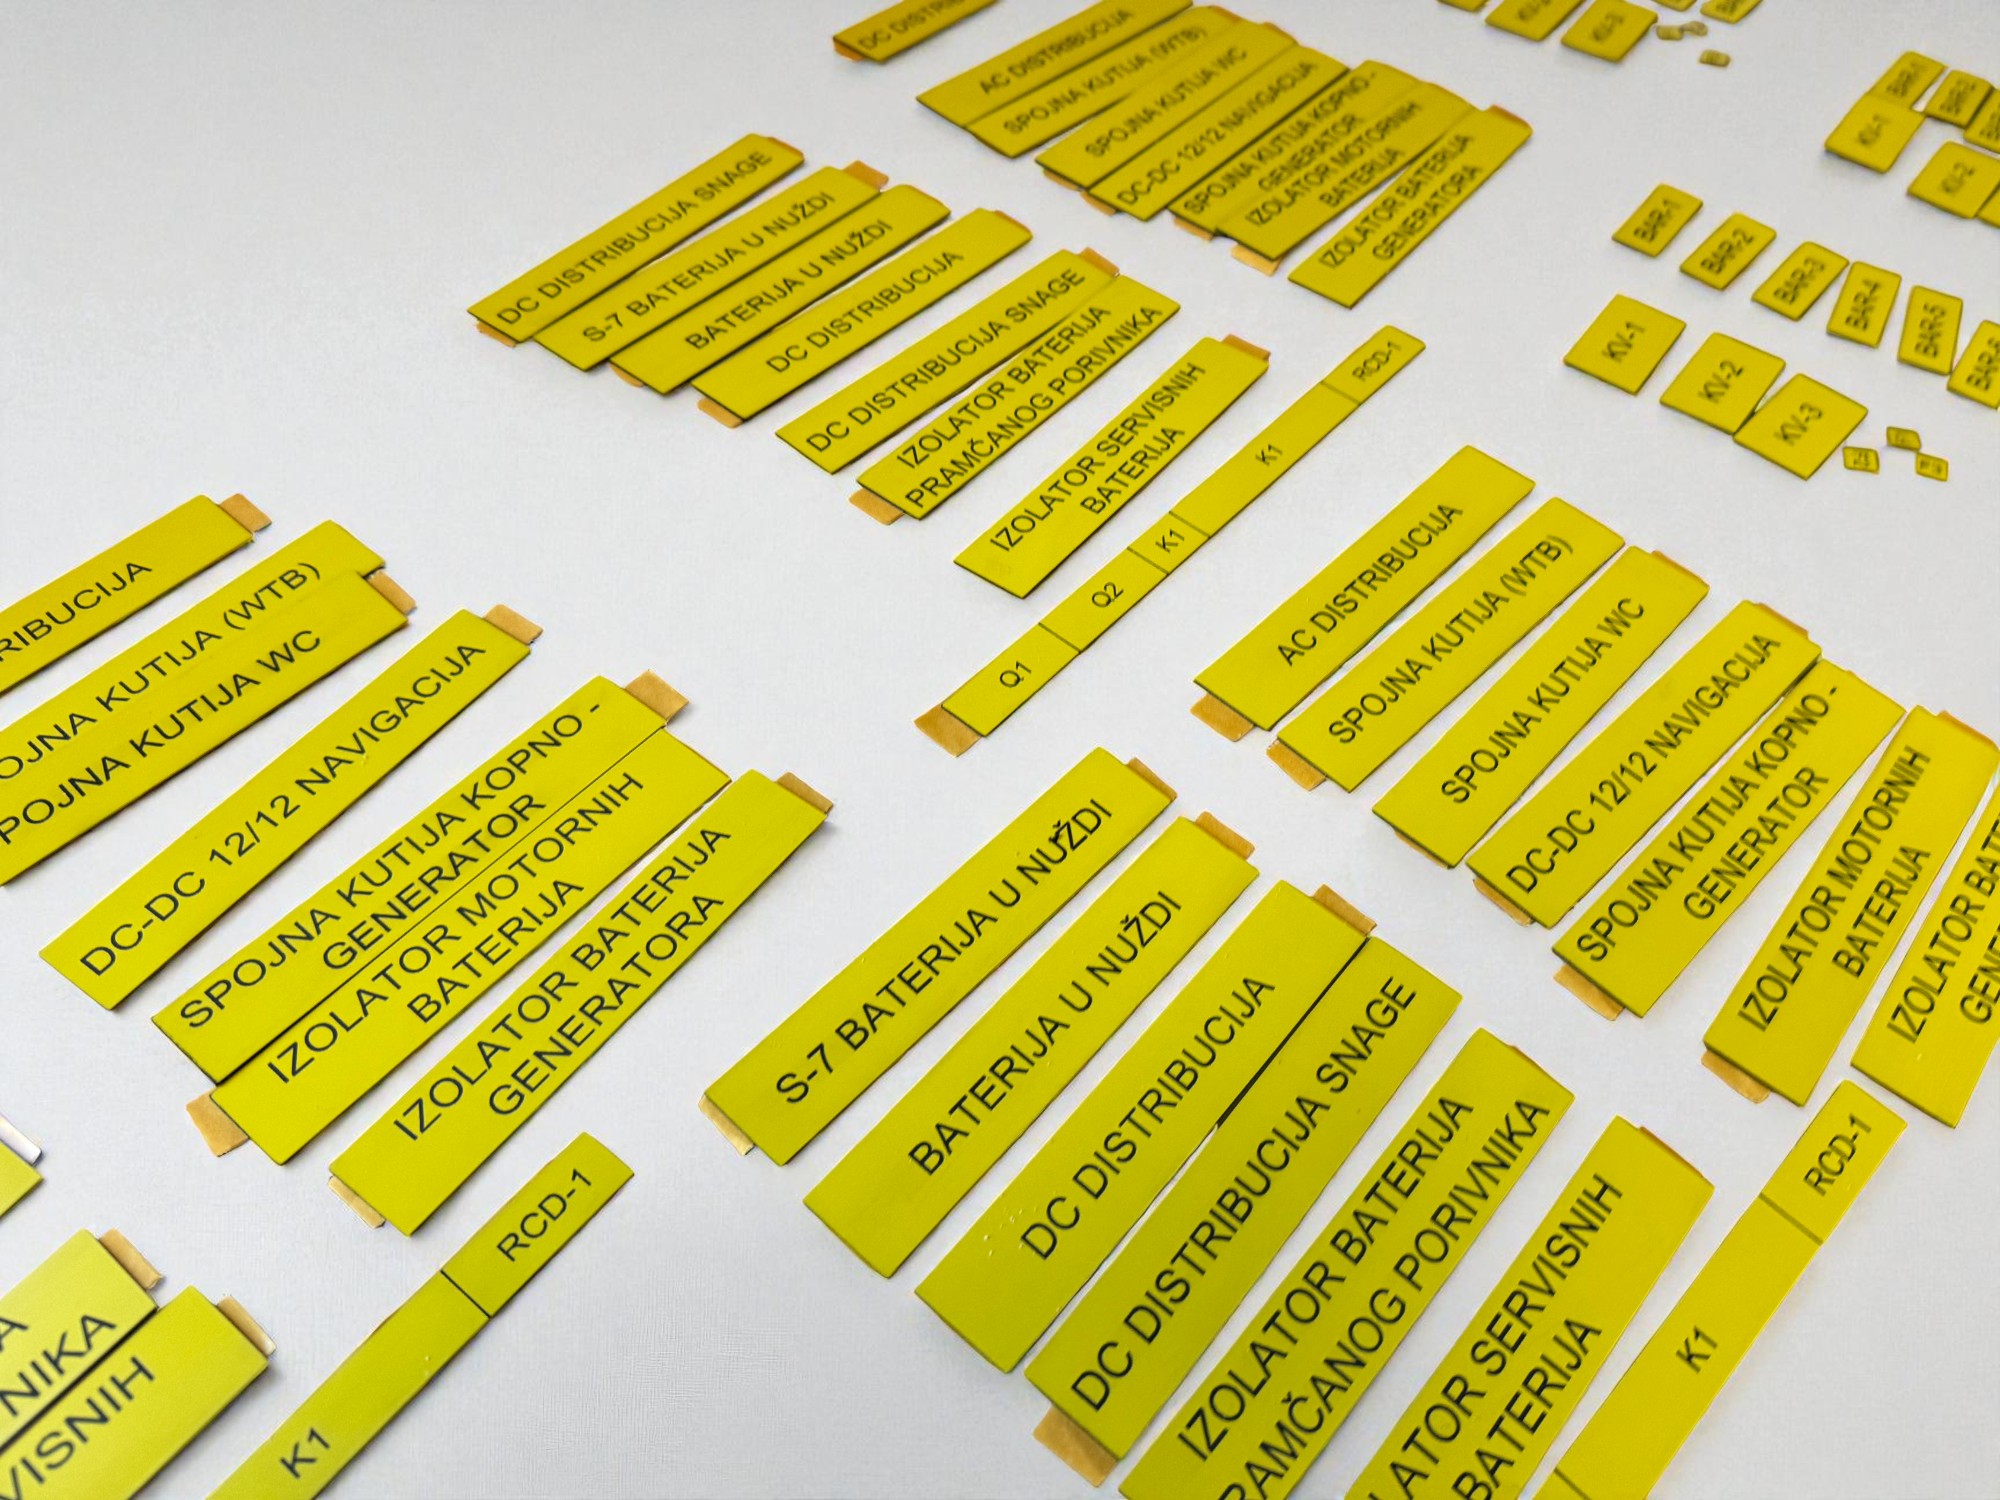 DC DISTRIB
AC DISTRIBUCIJA
SPOJNA KUTIJA (WTB)
SPOJNA KUTIJA WC
DC-DC 12/12 NAVIGACIJA
SPOJNA KUTIJA KOPNO -
GENERATOR
IZOLATOR MOTORNIH
BATERIJA
IZOLATOR BATERIJA
GENERATORA
KV-3
BAR-1
BAR-2
KV-1
KV-2
DC DISTRIBUCIJA SNAGE
S-7 BATERIJA U NUŽDI
BATERIJA U NUŽDI
DC DISTRIBUCIJA
DC DISTRIBUCIJA SNAGE
IZOLATOR BATERIJA
PRAMČANOG PORIVNIKA
IZOLATOR SERVISNIH
BATERIJA
RCD-1
K1
K1
Q2
Q1
BAR-1
BAR-2
BAR-3
BAR-4
BAR-5
BAR-6
KV-1
KV-2
KV-3
RIBUCIJA
OJNA KUTIJA (WTB)
POJNA KUTIJA WC
DC-DC 12/12 NAVIGACIJA
SPOJNA KUTIJA KOPNO -
GENERATOR
IZOLATOR MOTORNIH
BATERIJA
IZOLATOR BATERIJA
GENERATORA
RCD-1
K1
A
NIKA
VISNIH
AC DISTRIBUCIJA
SPOJNA KUTIJA (WTB)
SPOJNA KUTIJA WC
DC-DC 12/12 NAVIGACIJA
SPOJNA KUTIJA KOPNO -
GENERATOR
IZOLATOR MOTORNIH
BATERIJA
IZOLATOR BATE
GENE
S-7 BATERIJA U NUŽDI
BATERIJA U NUŽDI
DC DISTRIBUCIJA
DC DISTRIBUCIJA SNAGE
IZOLATOR BATERIJA
RAMČANOG PORIVNIKA
LATOR SERVISNIH
BATERIJA
RCD-1
K1